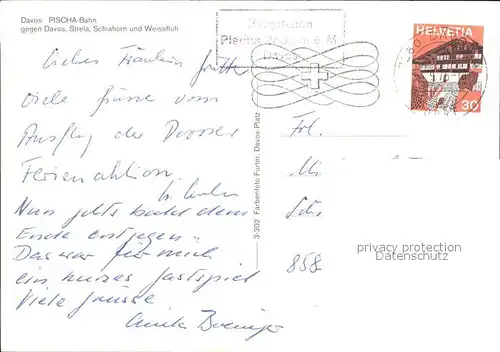 Davos PISCHA-Bahn
gegen Davos, Strela, Schiahorn und Weissfluh
Bergstation
Pischa 2483 m ü. M.
Davos
HELVETIA
30
Liebes Fräulein
viele Grüsse vom
Ausflug der Davoser
Ferienaktion.
Nun geht's bald dem
Ende entgegen.
Das war für mich
ein kurzes Gastspiel
Viele Grüsse
Anita
3-302 Farbenfoto Furter, Davos-Platz
Frl.
Mi
858
privacy protection
Datenschutz